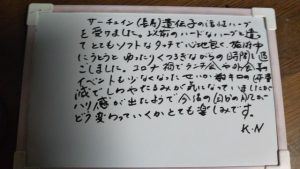 サーチュイン(長寿)遺伝子の活性ハーブ
を受けました。以前のハードなハーブと違っ
てとてもソフトなタッチで心地良く、施術中
にうとうと ゆったりくつろぎながらの時間に過
ごしました。コロナ禍でランチ会や飲み会
イベントも少なくなったせいか
減でしわやたるみが気になっていましたが
ハリ感が出たようで今後の自分の肌が
どう変わっていくかとても楽しみです。
K.N